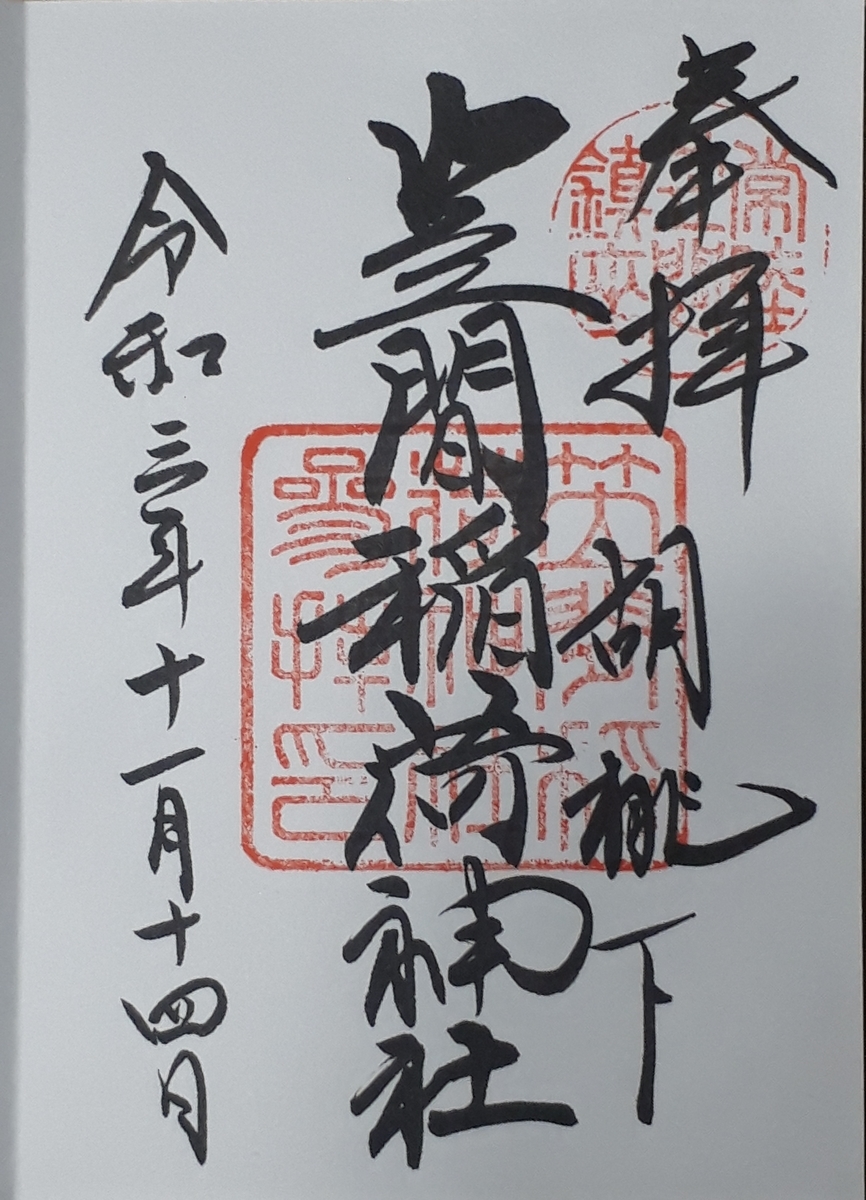 奉拝 胡桃下
笠間稲荷神社
令和三年十一月十四日
常陸
鎮座
笠間稲
荷神社
參拝印